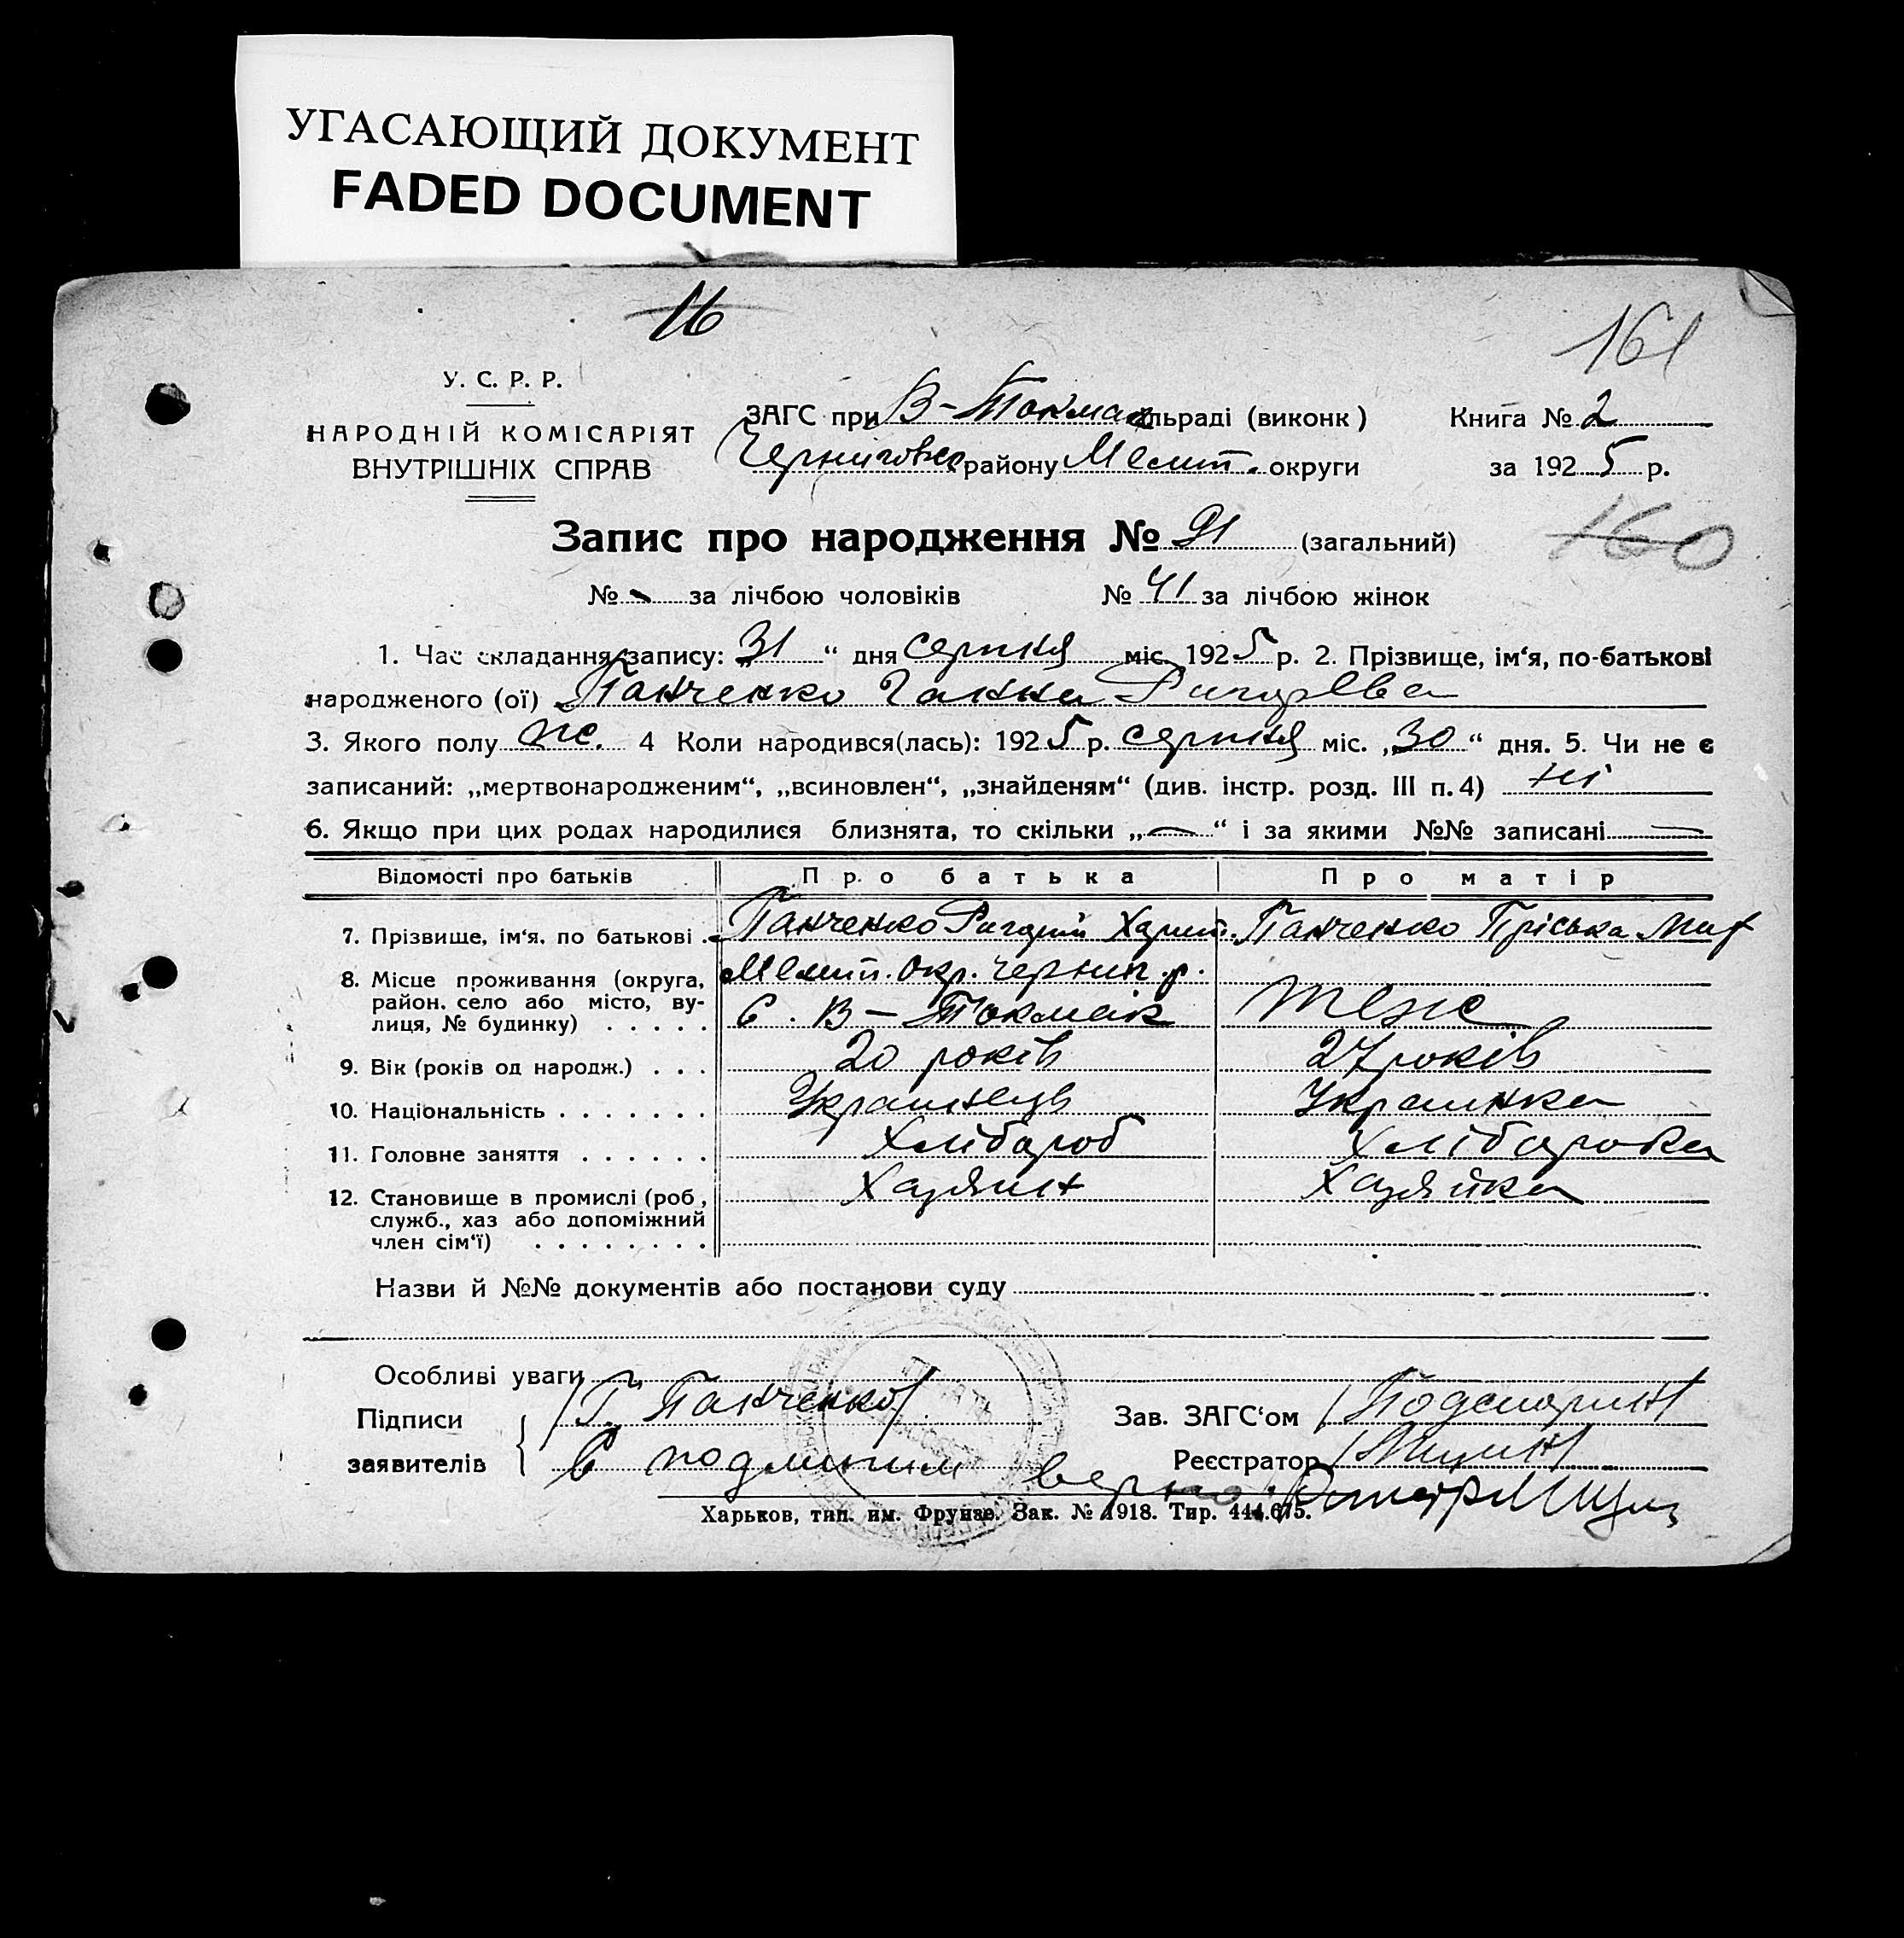 УГАСАЮЩИЙ ДОКУМЕНТ
FADED DOCUMENT
16
161
У. С. Р. Р.
НАРОДНІЙ КОМІСАРІЯТ
ВНУТРІШНІХ СПРАВ
ЗАГС при В-Токмак сільраді (виконк)
Книга № 2
Черниговск. району Мелит. округи
за 1925 р.
Запис про народження № 91 (загальний)
160
№ - за лічбою чоловіків
№ 41 за лічбою жінок
1. Час складання запису: „31“ дня серпня міс. 1925 р. 2. Прізвище, ім‘я, по-батькові
народженого (ої) Панченко Ганна Ригорівва
3. Якого полу ж. 4 Коли народився(лась): 1925 р. серпня міс. „30“ дня. 5. Чи не є
записаний: „мертвонародженим“, „всиновлен“, „знайденям“ (див. інстр. розд. III п. 4) ні
6. Якщо при цих родах народилися близнята, то скільки „—“ і за якими №№ записані —
Відомості про батьків Про батька Про матір
7. Прізвище, ім‘я, по батькові . Панченко Ригорій Харит. Панченко Пріська Миф
8. Місце проживання (округа, Мелит. окр. Черниг. р.
район, село або місто, ву- с. В-Токмак теж
лиця, № будинку) . . . . .
9. Вік (років од народж.) . . . 20 років 27 років
10. Національність . . . . . . . Українець Украинка
11. Головне заняття . . . . . . Хлібароб Хлібаробка
12. Становище в промислі (роб., Хазяин Хазяйка
служб., хаз або допоміжний
член сім‘ї) . . . . . . . .
Назви й №№ документів або постанови суду
Особливі уваги
Підписи
заявителів
/Г. Панченко/
Зав. ЗАГС‘ом
Реєстратор
С подлиним верно.
Харьков, тип. им. Фрунзе. Зак. № 1918. Тир. 444.675.